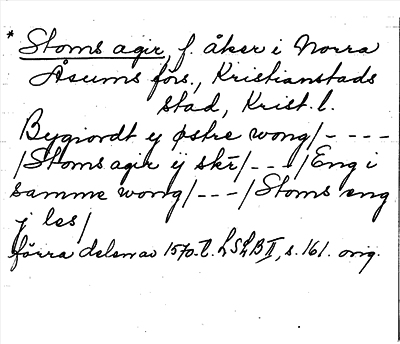 * Stoms agir, f. åker i Norra
Åsums förs., Kristianstads
stad, Krist. l.
Bygiordt ij østre wong/----
/Stoms agir ij skr̄/---/Eng i
samme wong/---/Stoms eng
ij les/
förra delen av 1570-t. LSLB II, s. 161. orig.